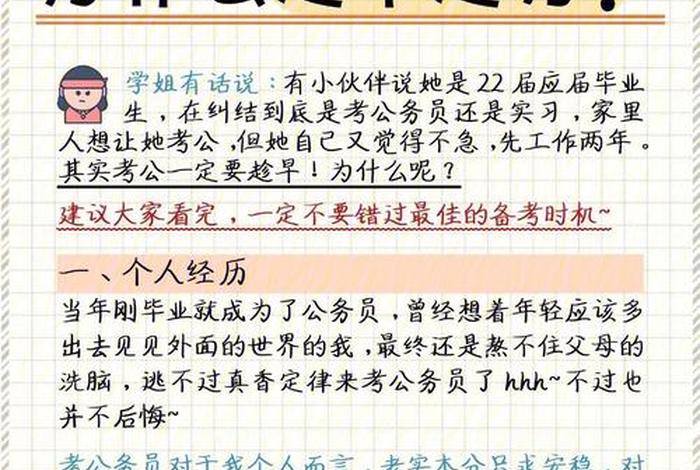 学姐有话说：有小伙伴说她是22届应届毕业
生，在纠结到底是考公务员还是实习，家里
人想让她考公,但她自己又觉得不急,先工作两年。
其实考公一定要趁早！为什么呢？
建议大家看完，一定不要错过最佳的备考时机~
一、个人经历
当年刚毕业就成为了公务员,曾经想着年轻应该多
出去见见外面的世界的我,最终还是熬不住父母的
洗脑，逃不过真香定律来考公务员了hhh~不过也
并不后悔~
考公务员对于我个人而言，老实本分只求安稳，对